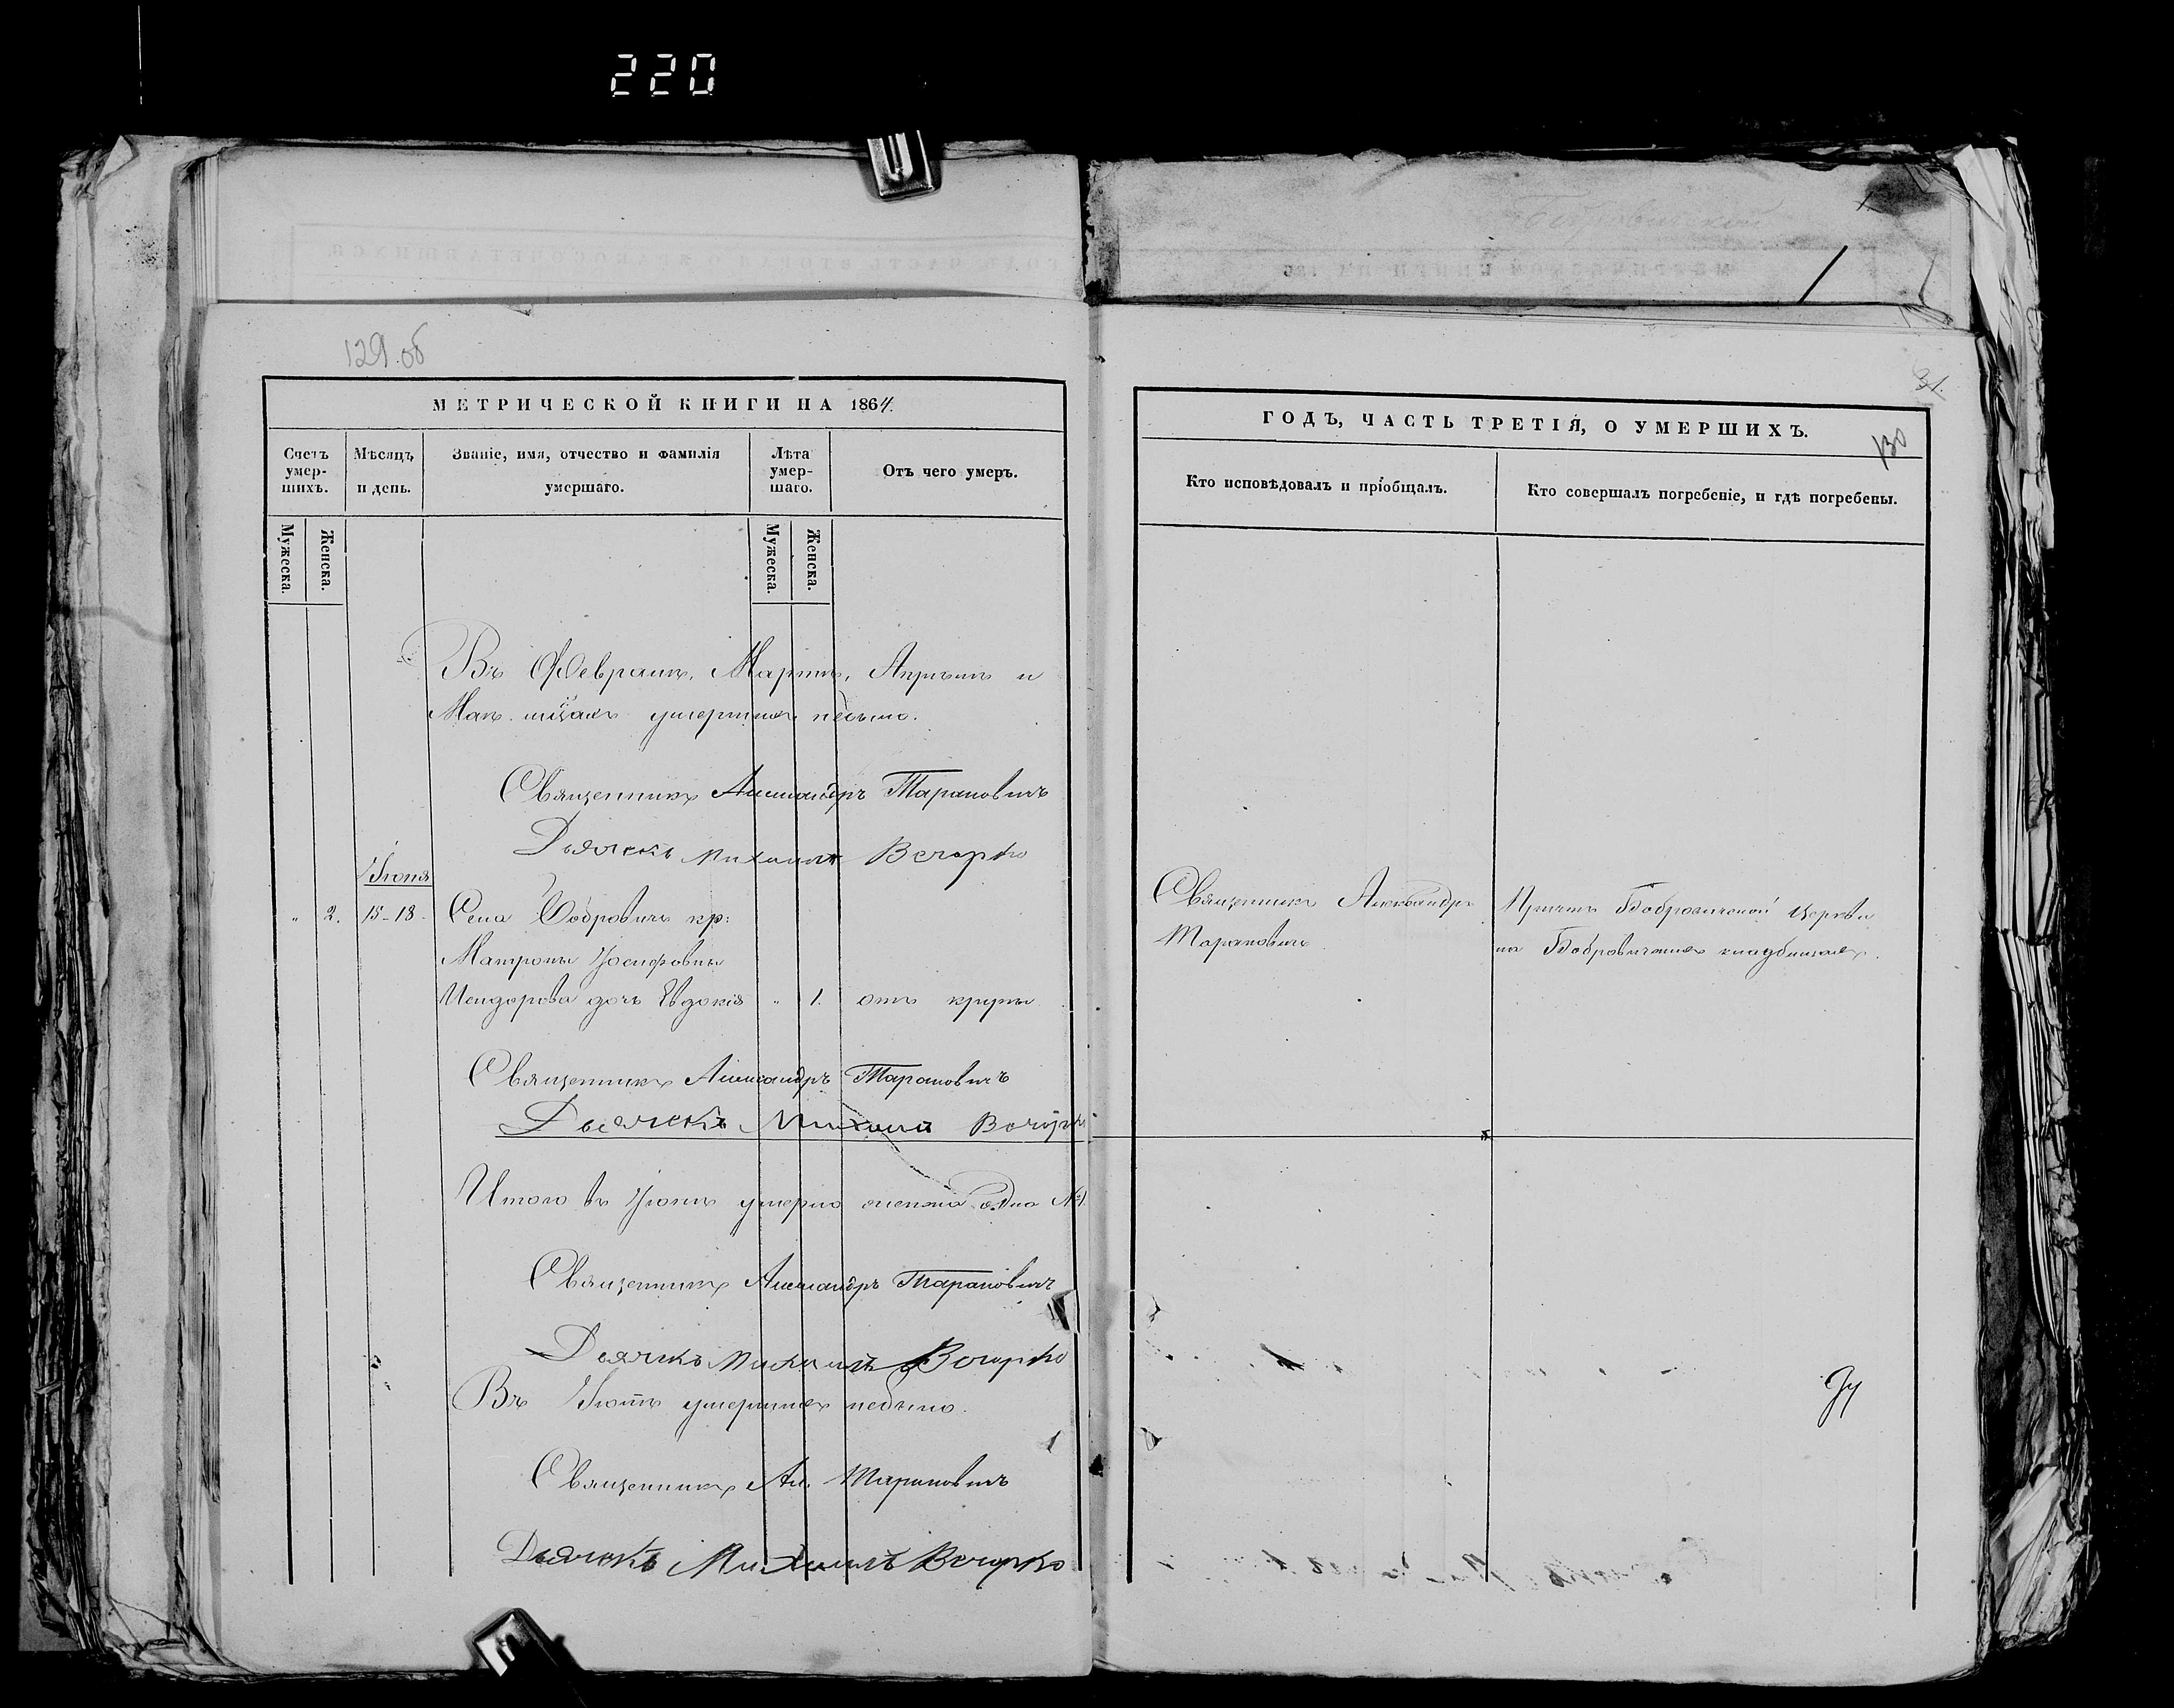 220
129 об
МЕТРИЧЕСКОЙ КНИГИ НА 1864.
Счетъ умер-шихъ.
Мѣсяцъ и день.
Званіе, имя, отчество и фамилія умершаго.
Лѣта умер-шаго.
Отъ чего умеръ.
Мужеска.
Женска.
Мужеска.
Женска.
Въ Февралѣ, Мартѣ, Апрѣлѣ и
Маѣ мцахъ умершихъ небыло.
Священникъ Александръ Тарановичъ
Дьячекъ Михаилъ Вечорко
Іюня
" 2. 15-18. Села Бобровичъ кр:
Матроны Іосифовны
Исидорова дочь Евдокія " 1. отъ крупы
Священникъ Александръ Тарановичъ
Дьячекъ Михаилъ Вечорко
Итого въ Іюнѣ умерло женска одна №1.
Священникъ Александръ Тарановичъ
Дьячекъ Михаилъ Вечорко
Въ Іюлѣ умершихъ небыло.
Священникъ Ал. Тарановичъ
Дьячекъ Михаилъ Вечорко
31.
ГОДЪ, ЧАСТЬ ТРЕТІЯ, О УМЕРШИХЪ.
130
Кто исповѣдовалъ и пріобщалъ.
Кто совершалъ погребеніе, и гдѣ погребены.
Священникъ Александръ
Тарановичъ
Причтъ Бобровичской церкви
на Бобровичскихъ кладбищахъ.